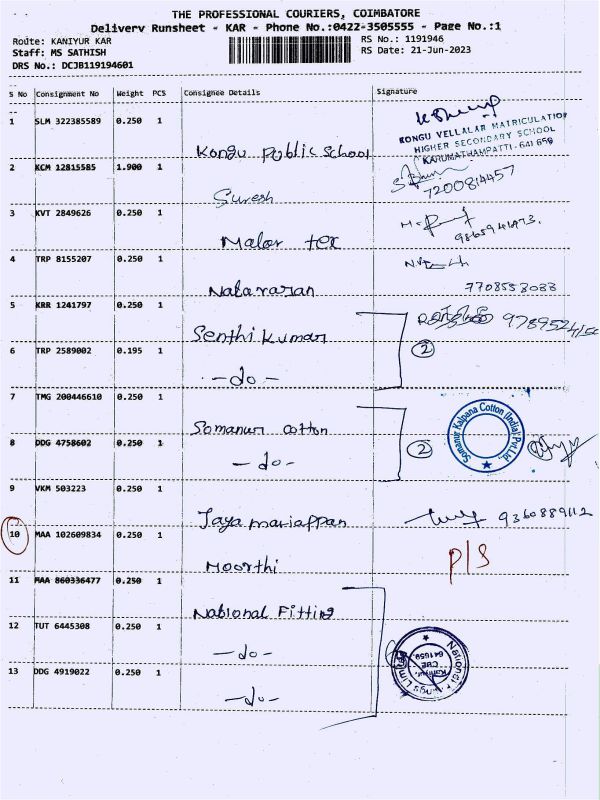 THE PROFESSIONAL COURIERS, COIMBATORE
Delivery Runsheet - KAR - Phone No.:0422-3505555 - Page No.:1
Route: KANIYUR KAR
RS No.: 1191946
Staff: MS SATHISH
RS Date: 21-Jun-2023
DRS No.: DCJB119194601
S No Consignment No Weight PCS Consignee Details Signature
1 SLM 322385589 0.250 1
KONGU VELLALAR MATRICULATION
HIGHER SECONDARY SCHOOL
KARUMATHAMPATTI - 641 659
Kongu Public School
2 KCM 12815585 1.900 1
7200814457
Suresh
3 KVT 2849626 0.250 1
Malar tex
4 TRP 8155207 0.250 1
Natarajan
7708553033
5 KRR 1241797 0.250 1
Senthi Kumar
6 TRP 2589002 0.195 1
②
-do-
7 TMG 200446610 0.250 1
Somanur Cotton
Somanur Kalpana Cotton (India) Pvt. Ltd.
8 DDG 4758602 0.250 1
②
-do-
9 VKM 503223 0.250 1
Jaya mariappan
9360889112
10 MAA 102609834 0.250 1
Moorthi
P/S
11 MAA 860336477 0.250 1
National Fitting
12 TUT 6445308 0.250 1
-do-
13 DDG 4919022 0.250 1
-do-